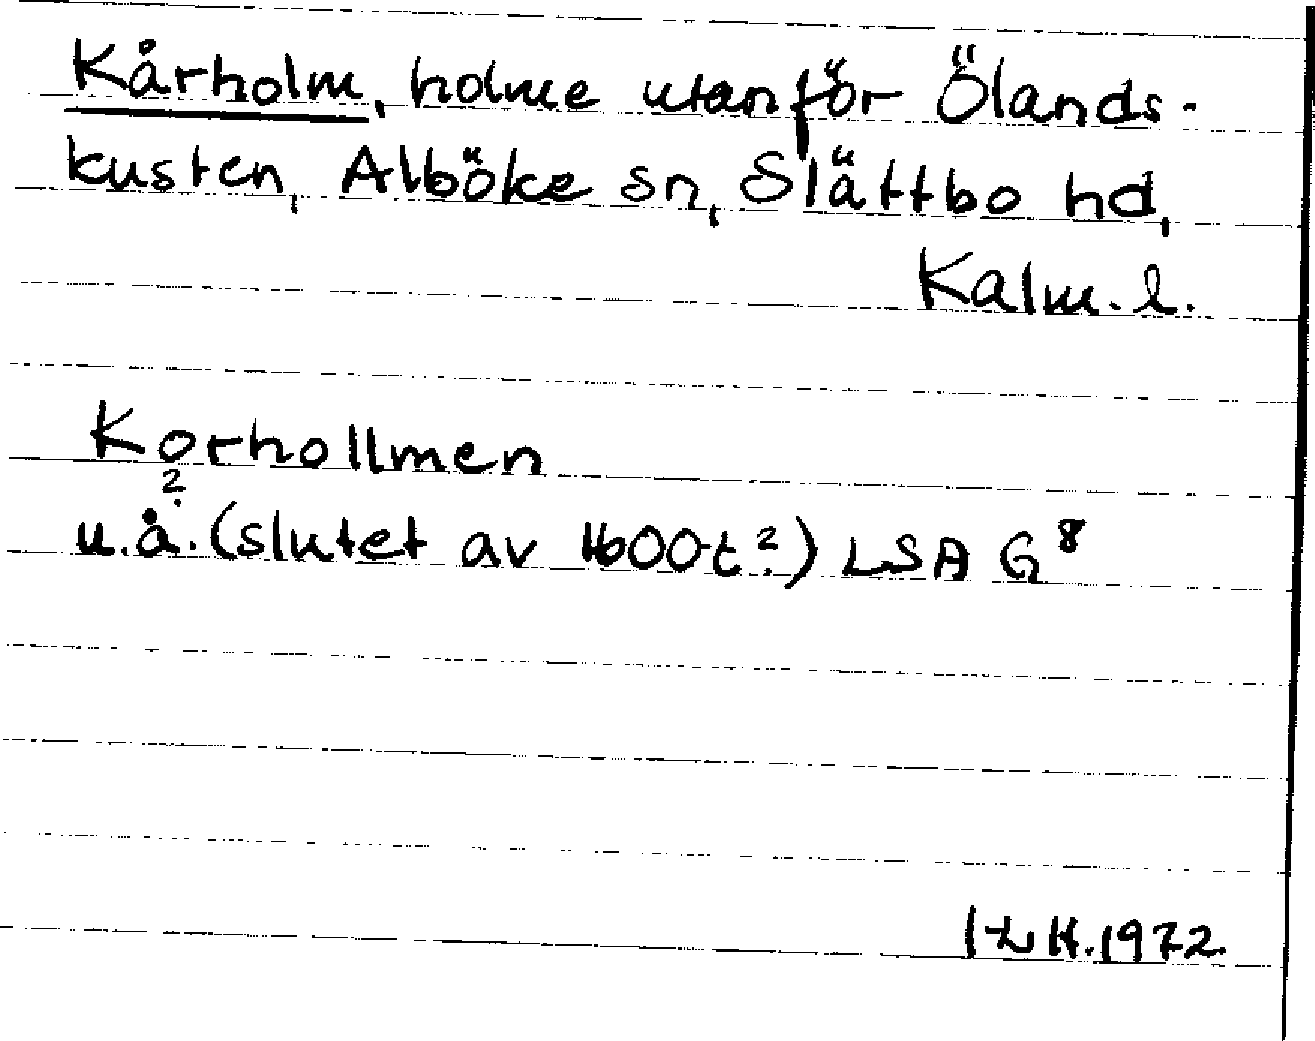 Kårholm, holme utanför Ölands-
kusten, Alböke sn, Slättbo hd,
Kalm. l.
Korhollmen
?
u.å. (slutet av 1600-t?) LSA G8
H. 1972